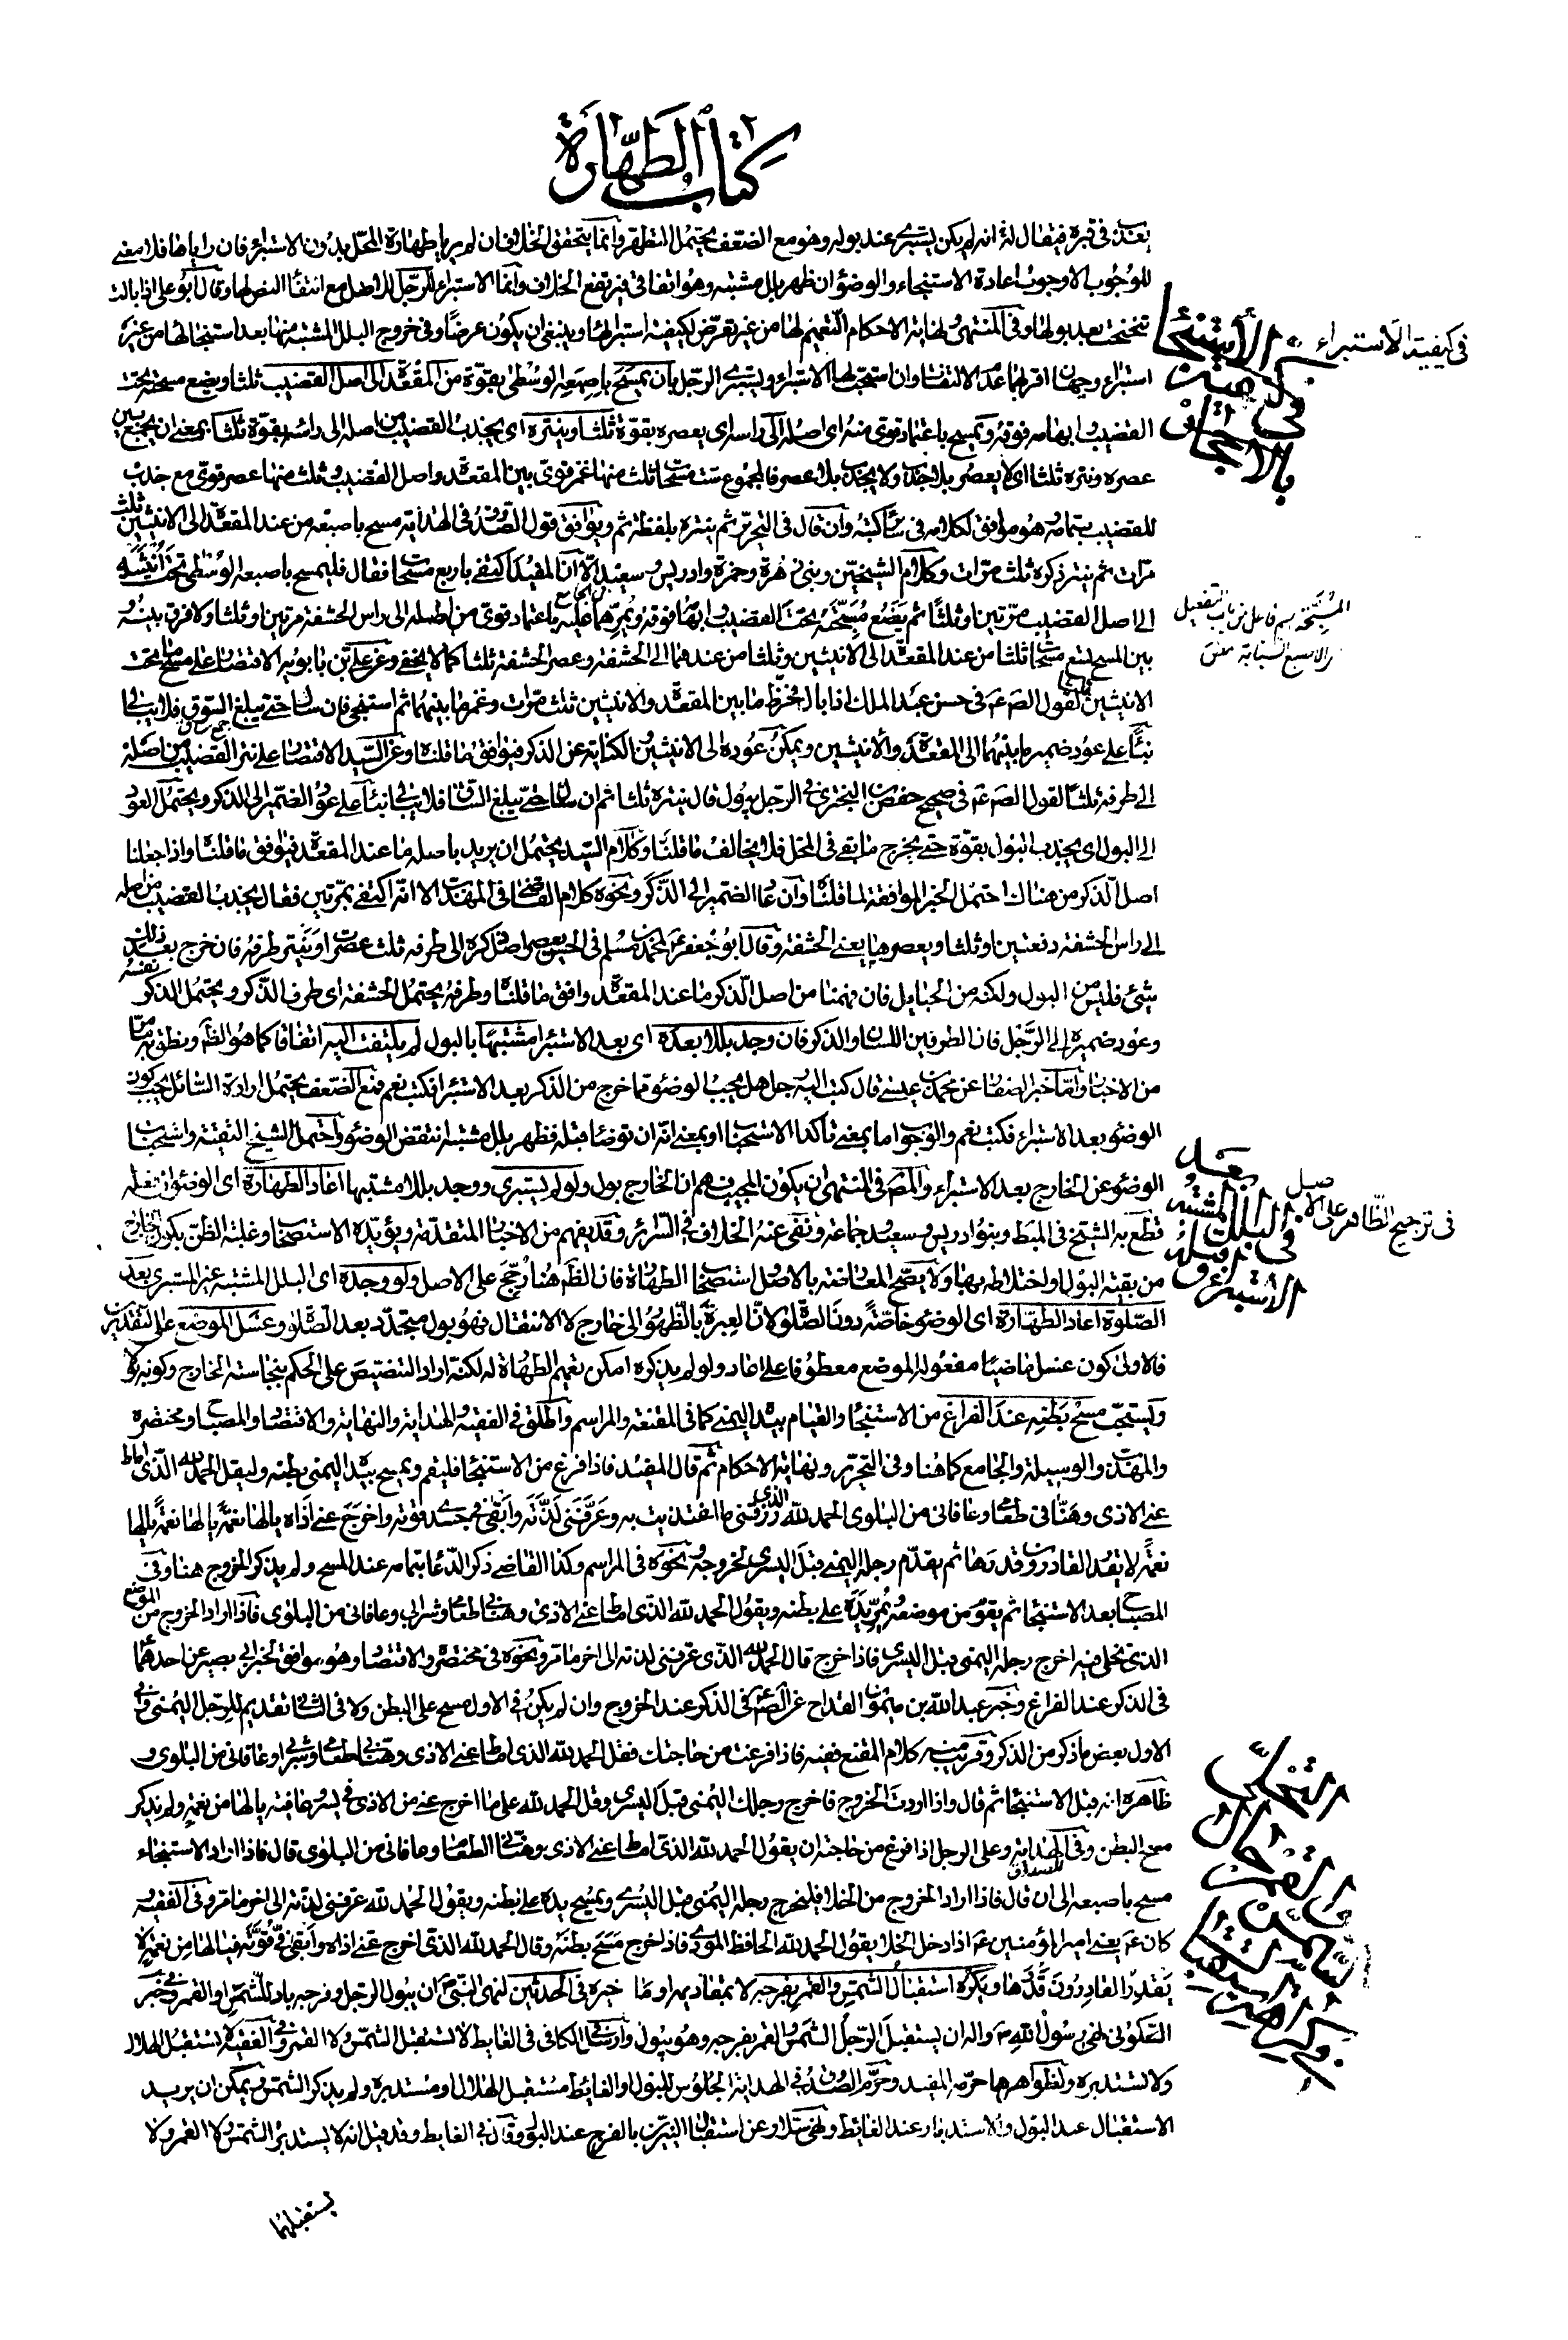 كتاب الطهارة
يعذب في قبره فيقال له انه لم يكن يستبرئ عند بوله وهو مع الضعف يحتمل التطهر وانما يتحقق الخلاف ان لم ير اطهارة المحل بدون الاستبراء فان رايا ها فلا معنى
للوجوب الا وجوب اعادة الاستنجاء والوضوء ان ظهر بلل مشتبه وهو اتفاقي فيرتفع الخلاف وانما الاستبراء للرجل للاصل مع انتفاء النص لها وقال ابو علي اذا بالت
تنحنحت بعد بولها وفي المنتهى ونهاية الاحكام التعميم لها من غير تعرض لكيفية استبرائها وينبغي ان يكون عرضا وفي خروج البلل المشتبه منها بعد استنجائها من غير
استبراء وجهان اقربهما عدم الالتفات وان استحب لها الاستبراء ويستبرئ الرجل بان يمسح باصبعه الوسطى بقوة من المقعدة الى اصل القضيب ثلثا ويضع مسبحته تحت
القضيب وابهامه فوقه ويمسح باعتماد قوي منه اي اصله الى راسه اي يعصره بقوة ثلثا وينتره اي يجذب القضيب من اصله الى راسه بقوة ثلثا بمعنى ان يجمع بين
عصره ونتره ثلثا اي لا يعصر بلا جذب ولا يجذب بلا عصر فالمجموع ست مسحات ثلث منها غمز قوي بين المقعدة واصل القضيب وثلث منها عصر قوي مع جذب
للقضيب بتمامه هو موافق لكلامه في سائر كتبه وان قال في التحرير ثم ينتره بلفظة ثم ويوافق قول الصدوق في الهداية مسح باصبعه من عند المقعدة الى الانثيين ثلث
مرات ثم ينتر ذكره ثلث مرات وكلام الشيخين وبني زهرة وحمزة وادريس وسعيد الا ان المفيد اكتفى باربع مسحات فقال فليمسح باصبعه الوسطى تحت انثييه
الى اصل القضيب مرتين او ثلثا ثم يضع مسبحته تحت القضيب وابهامه فوقه ويمرهما عليه باعتماد قوي من اصله الى راس الحشفة مرتين او ثلثا ولا فرق بينه و
بين المسح تسع مسحات ثلثا من عند المقعدة الى الانثيين وثلثا من عندهما الى الحشفة وعصر الحشفة ثلثا كما لا يخفى وعن علي بن بابويه الاقتصار على مسح ما تحت
الانثيين ثلثا لقول الصادق ع في حسن عبد الملك اذا بال فخرط ما بين المقعدة والانثيين ثلث مرات وغمز ما بينهما ثم استنجى فان سال حتى يبلغ السوق فلا يبالي
بناء على عود ضمير ما بينهما الى المقعدة والانثيين ويمكن عوده الى الانثيين والكناية عن الذكر فيوافق ما قلناه وعن السيد الاقتصار على نتر القضيب من اصله
الى طرفه ثلثا لقول الصادق ع في صحيح حفص بن البختري في الرجل يبول قال ينتره ثلثا ثم ان سال حتى يبلغ الساق فلا يبالي بناء على عود الضمير الى الذكر ويحتمل العود
الى البول اي يجذب البول بقوة حتى يخرج ما بقي في المحل فلا يخالف ما قلنا وكلام السيد يحتمل ان يريد باصله ما عند المقعدة فيوافق ما قلناه واذا جعلنا
اصل الذكر من هناك احتمل الخبر الموافقة لما قلناه وان عاد الضمير الى الذكر ونحوه كلام القاضي في المهذب الا انه اكتفى بمرتين فقال يجذب القضيب من اصله
الى راس الحشفة دفعتين او ثلثا ويعصرها يعني الحشفة وقال ابو جعفر ع لمحمد بن مسلم في الحسن يعصر اصل ذكره الى طرفه ثلث عصرات وينتر طرفه فان خرج بعد ذلك
شيء فليس من البول ولكنه من الحبايل فان فهمنا من اصل الذكر ما عند المقعدة وافق ما قلناه وطرفه يحتمل الحشفة اي طرف الذكر ويحتمل الذكر نفسه
وعود ضميره الى الرجل فان الطرفين اللسان والذكر فان وجد بللا بعده اي بعد الاستبراء مشتبها بالبول لم يلتفت اليه اتفاقا كما هو الظاهر ونطق به ما مر
من الاخبار واما خبر الصفار عن محمد بن عيسى قال كتب اليه رجل هل يجب الوضوء مما خرج من الذكر بعد الاستبراء فكتب نعم فمع الضعف يحتمل ارادة السائل يجب كون
الوضوء بعد الاستبراء فكتب نعم والوجوب اما بمعنى تاكد الاستحباب او بمعنى انه ان توضا قبله فظهر بلل مشتبه انتقض الوضوء واحتمل الشيخ التقية واستحباب
الوضوء عن الخارج بعد الاستبراء والمصنف في المنتهى ان يكون المجيب فهم ان الخارج بول ولو لم يستبرئ ووجد بللا مشتبها اعاد الطهارة اي الوضوء ان فعله
قطع به الشيخ في المبسوط وبنو ادريس وسعيد وجماعة ونفى عنه الخلاف في السرائر وقد يفهم من الاخبار المتقدمة ويؤيده الاستصحاب وغلبة الظن بكون الخارج
من بقية البول او اختلاطه بها ولا يصح المعارضة بالاصل واستصحاب الطهارة فان الظاهر هنا رجح على الاصل ولو وجده اي البلل المشتبه غير المستبرئ بعد
الصلوة اعاد الطهارة اي الوضوء خاصة دون الصلوة لان العبرة بالظهور الى خارج لا الانتقال فهو بول متجدد بعد الصلوة وغسل الموضع على التقديرين
فالاولى كون غسل ماضيا مفعوله الموضع معطوفا على اعاد ولو لم يذكره امكن تعميم الطهارة له لكنه اراد التنصيص على الحكم بنجاسة الخارج وكونه بولا
ويستحب مسح بطنه عند الفراغ من الاستنجاء والقيام بيده اليمنى كما في المقنعة والمراسم واطلق في الفقيه والهداية والنهاية والاقتصاد والمصباح ومختصره
والمهذب والوسيلة والجامع كما هنا وفي التحرير ونهاية الاحكام ثم قال المفيد فاذا فرغ من الاستنجاء فليقم ويمسح بيده اليمنى بطنه وليقل الحمد لله الذي اماط
عني الاذى وهناني طعامي وعافاني من البلوى الحمد لله الذي رزقني ما اغتذيت به وعرفني لذته وابقى في جسدي قوته واخرج عني اذاه يا لها نعمة يا لها نعمة يا لها
نعمة لا يقدر القادرون قدرها ثم يقدم رجله اليمنى قبل اليسرى لخروجه ونحوه في المراسم وكذا القاضي ذكر الدعا بتمامه عند المسح ولم يذكر الخروج هنا وفي
المصباح بعد الاستنجاء ثم يقوم من موضعه ويمر يده على بطنه ويقول الحمد لله الذي اماط عني الاذى وهناني طعامي وشرابي وعافاني من البلوى فاذا اراد الخروج من الموضع
الذي تخلى فيه اخرج رجله اليمنى قبل اليسرى فاذا خرج قال الحمد لله الذي عرفني لذته الى اخر ما مر ونحوه في مختصره والاقتصاد وهو موافق لخبر ابي بصير عن احدهما
في الذكر عند الفراغ وخبر عبد الله بن ميمون القداح عن الصادق ع في الذكر عند الخروج وان لم يكن في الاول مسح على البطن ولا في الثاني تقديم للرجل اليمنى وفي
الاول بعض ما ذكر من الذكر وقريب منه كلام المقنع ففيه فاذا فرغت من حاجتك فقل الحمد لله الذي اماط عني الاذى وهناني طعامي وشرابي وعافاني من البلوى و
ظاهره انه قبل الاستنجاء ثم قال واذا اردت الخروج فاخرج رجلك اليمنى قبل اليسرى وقل الحمد لله على ما اخرج عني من الاذى في يسر وعافية يا لها من نعمة ولم يذكر
مسح البطن وفي الهداية للصدوق وعلى الرجل اذا فرغ من حاجته ان يقول الحمد لله الذي اماط عني الاذى وهناني الطعام وعافاني من البلوى قال فاذا اراد الاستنجاء
مسح باصبعه الى ان قال فاذا اراد الخروج من الخلاء فليخرج رجله اليمنى قبل اليسرى ويمسح يده على بطنه ويقول الحمد لله عرفني لذته الى اخر ما مر وفي الفقيه
كان ع يعني امير المؤمنين ع اذا دخل الخلا يقول الحمد لله الحافظ المؤدي فاذا خرج مسح بطنه وقال الحمد لله الذي اخرج عني اذاه وابقى في قوته فيا لها من نعمة لا
يقدر القادرون قدرها ويكره استقبال الشمس والقمر بفرجه لا بمقاديمه او ما خيره في الحدثين لنهي النبي ص ان يبول الرجل وفرجه باد للشمس او القمر وفي خبر
السكوني نهى رسول الله ص واله ان يستقبل الرجل الشمس والقمر بفرجه وهو يبول وارسل في الكافي في الغايط لا تستقبل الشمس ولا القمر وفي الفقيه لا تستقبل الهلال
ولا تستدبره ولظواهرها حرمه المفيد وحرم الصدوق في الهداية الجلوس للبول او الغائط مستقبل الهلال او مستدبره ولم يذكر الشمس ويمكن ان يريد
الاستقبال عند البول والاستدبار عند الغائط ونهى سلار عن استقبال النيرين بالفرج عند البول وقال في الغايط وقد قيل انه لا يستدبر الشمس ولا القمر ولا
يستقبلهما
في كيفية الاستبراء
في كراهية الاستنجاء
المسبحة بسم فاعل من باب التفعيل
الاصبع السبابة
في ترجيح الظاهر على الاصل
في البلل المشتبه بعد
الاستبراء وقبله
في كراهية استقبال الشمس والقمر حال التخلي